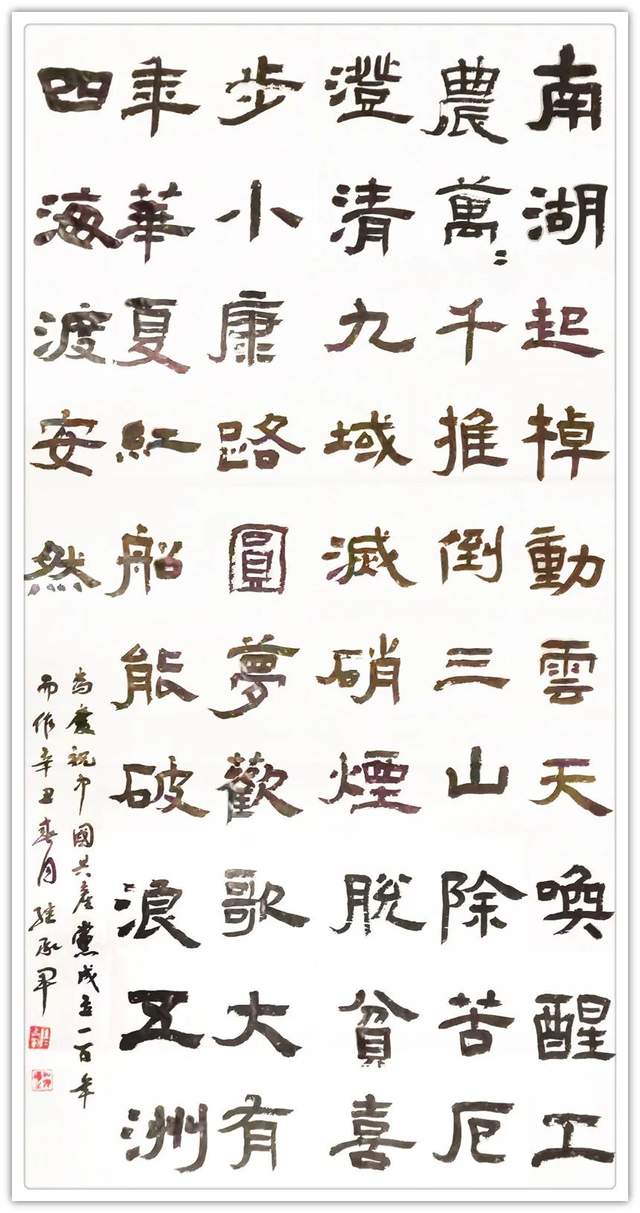 南湖起棹動雲天喚醒工
農萬〻千推倒三山除苦厄
澄清九域滅硝煙脫貧喜
步小康路圓夢歡歌大有
年華夏紅船能破浪五洲
四海渡安然
為慶祝中國共產黨成立一百年
而作辛丑春月